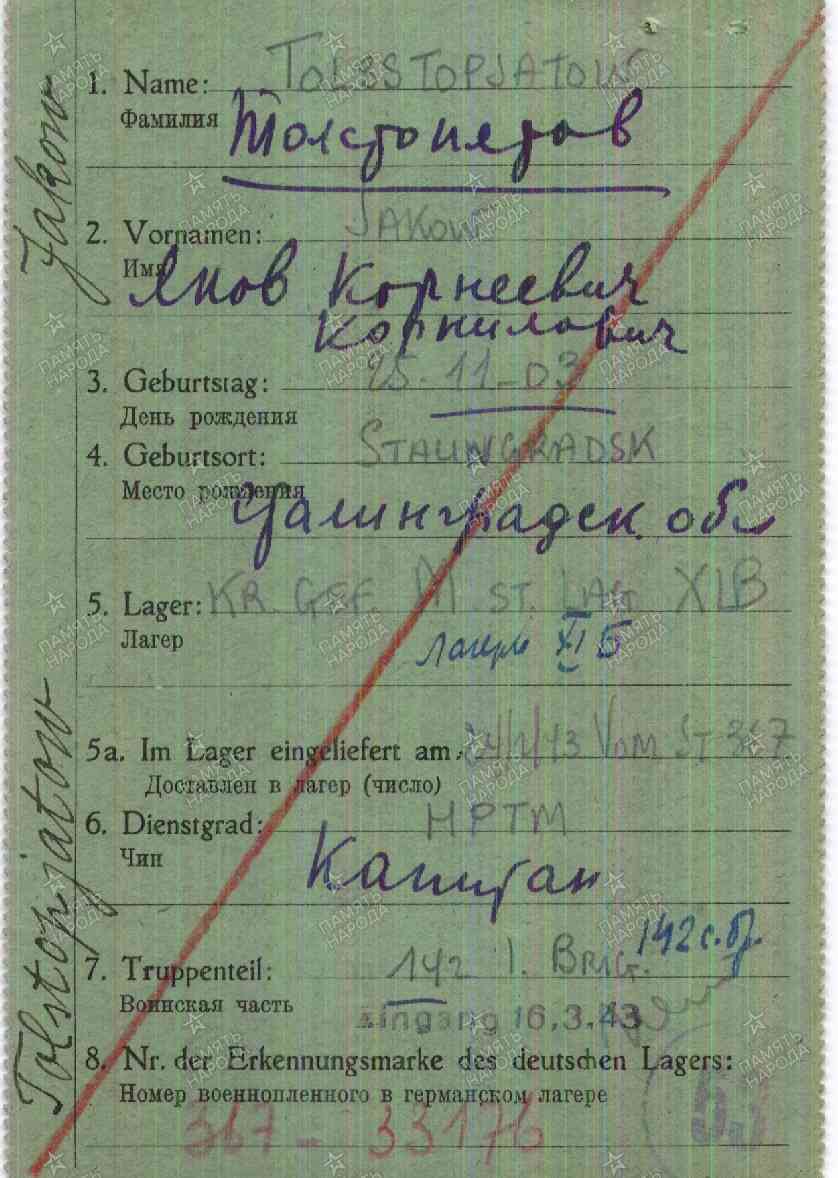 1. Name: TOLSSTOPJATOW
Фамилия Толстопятов
2. Vornamen: JAKOW
Имя Яков Корнеевич
Корнилович
3. Geburtstag: 25-11-03
День рождения
4. Geburtsort: STALINGRADSK
Место рождения Сталинградск. обл
5. Lager: KR. GEF. M ST. LAG XI B
Лагер лагерь XI Б
5a. Im Lager eingeliefert am: 43 VOM ST 367
Доставлен в лагер (число)
6. Dienstgrad: HPTM
Чин Капитан
7. Truppenteil: 142 I. BRIG. 142 с. бр.
Воинская часть Eingang 16.3.43
8. Nr. der Erkennungsmarke des deutschen Lagers:
Номер военнопленного в германском лагере
367 - 33176
63
Tolstopjatow Jakow
ПАМЯТЬ НАРОДА